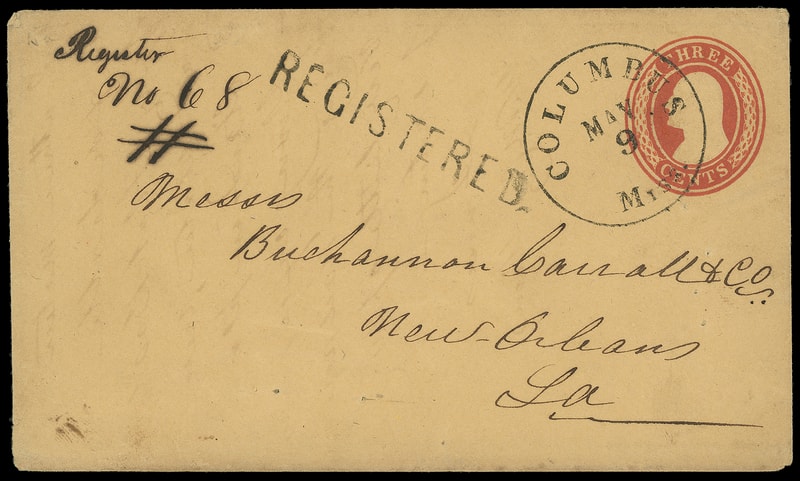 Register
No 68
REGISTERED
COLUMBUS
MAY
9
Miss
THREE
CENTS
Messrs
Buchannon Carroll & Co.
New-Orleans
La